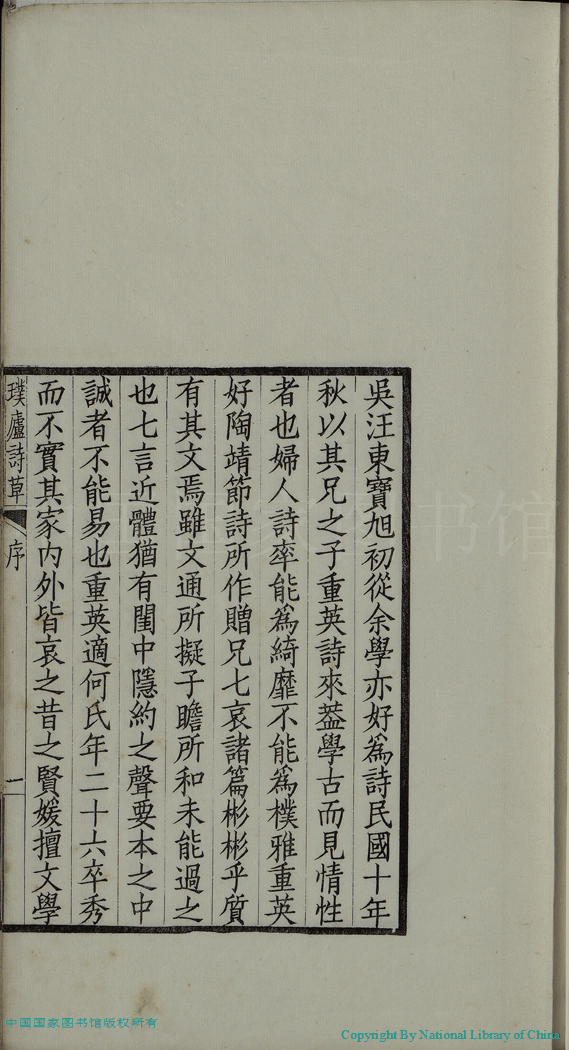 吳汪東寶旭初從余學亦好爲詩民國十年
秋以其兄之子重英詩來葢學古而見情性
者也婦人詩率能爲綺靡不能爲樸雅重英
好陶靖節詩所作贈兄七哀諸篇彬彬乎質
有其文焉雖文通所擬子瞻所和未能過之
也七言近體猶有閨中隱約之聲要本之中
誠者不能易也重英適何氏年二十六卒秀
而不實其家內外皆哀之昔之賢媛擅文學
璞廬詩草 序 一
中国国家图书馆版权所有
Copyright By National Library of China